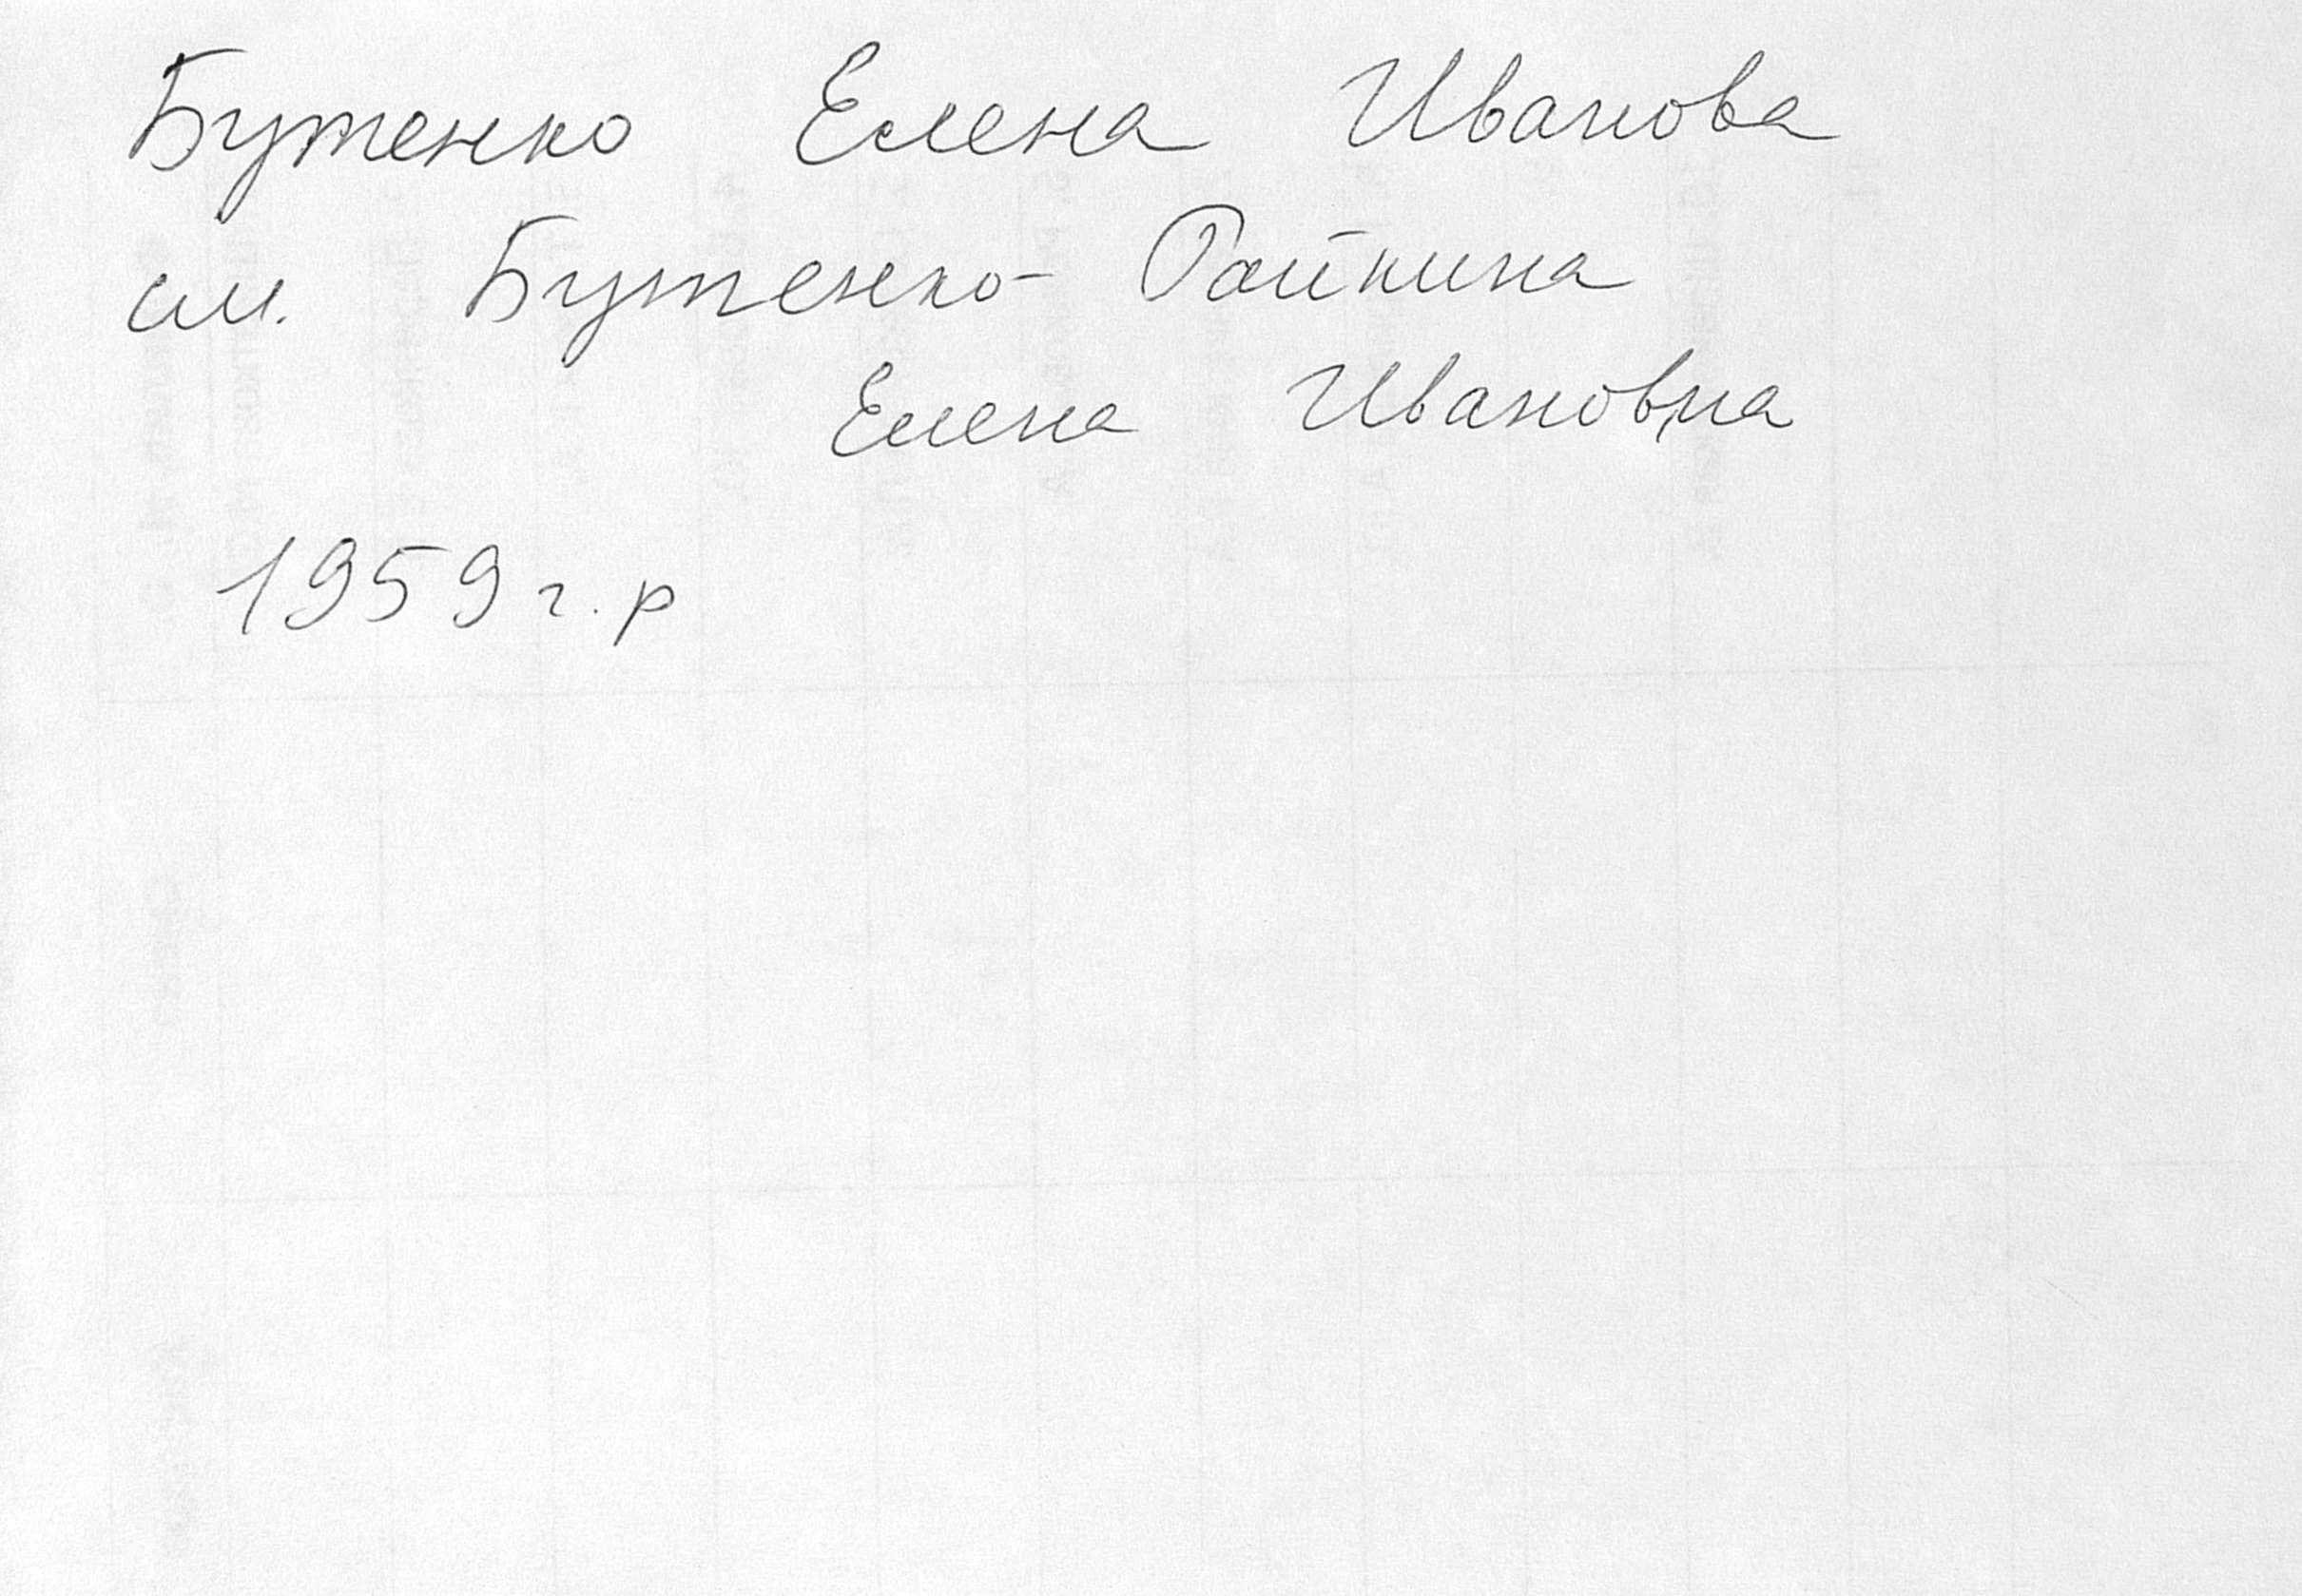 Бутенко Елена Иванова
см. Бутенко- Райкина
Елена Ивановна
1959 г. р